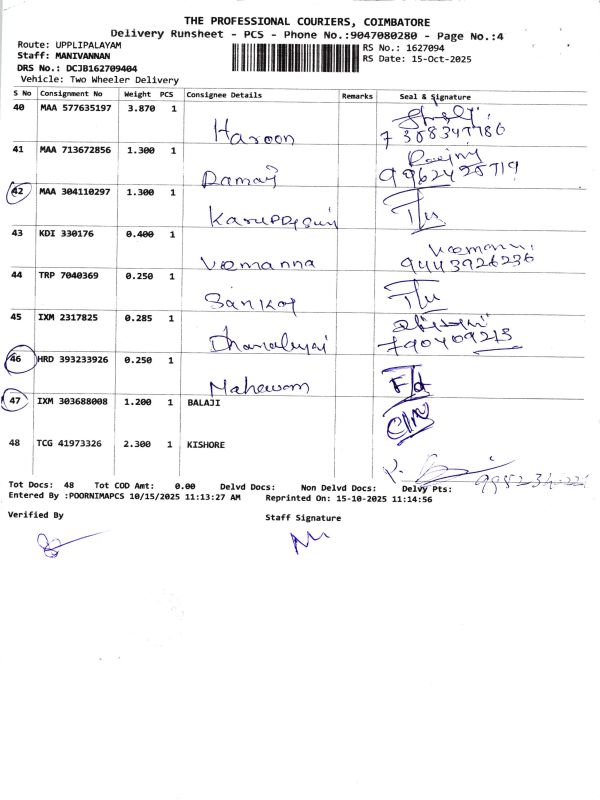 THE PROFESSIONAL COURIERS, COIMBATORE
Delivery Runsheet - PCS - Phone No.:9047080280 - Page No.:4
Route: UPPLIPALAYAM
RS No.: 1627094
Staff: MANIVANNAN
RS Date: 15-Oct-2025
DRS No.: DCJB162709404
Vehicle: Two Wheeler Delivery
S No Consignment No Weight PCS Consignee Details Remarks Seal & Signature
40 MAA 577635197 3.870 1 Haroon 7358347786
41 MAA 713672856 1.300 1 Ramaj
42 MAA 304110297 1.300 1 T/u
43 KDI 330176 0.400 1 Vemanna 9443926236
44 TRP 7040369 0.250 1 T/u
45 IXM 2317825 0.285 1
46 HRD 393233926 0.250 1 F/d
47 IXM 303688008 1.200 1 BALAJI
48 TCG 41973326 2.300 1 KISHORE
Tot Docs: 48 Tot COD Amt: 0.00 Delvd Docs: Non Delvd Docs: Delvy Pts:
Entered By :POORNIMAPCS 10/15/2025 11:13:27 AM Reprinted On: 15-10-2025 11:14:56
Verified By
Staff Signature